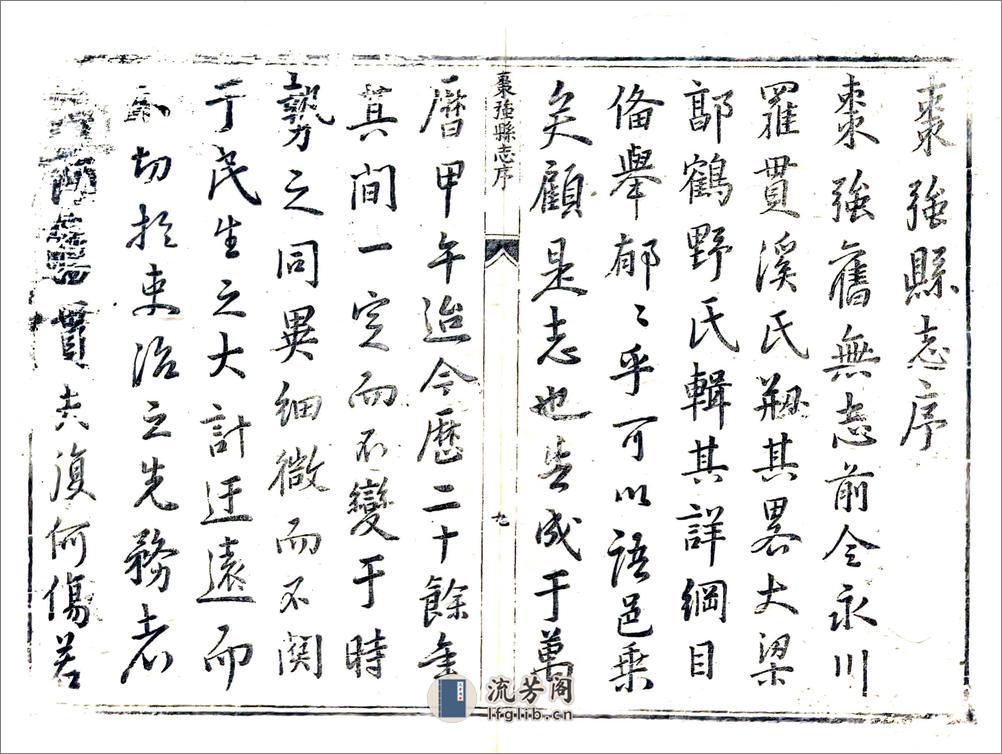 棗強縣志序
棗強舊無志前令永川
羅貫溪氏剏其畧大梁
鄗鶴野氏輯其詳綱目
俻舉郁〻乎可以語邑乗
矣顧是志也皆成于萬
棗強縣志序
九
曆甲午迨今歷二十餘年
其间一定而不變于時
勢之同異细微而不関
于民生之大計迂遠而
不切於吏治之先務者
貫去復何傷若
流芳阁
lfglib.cn